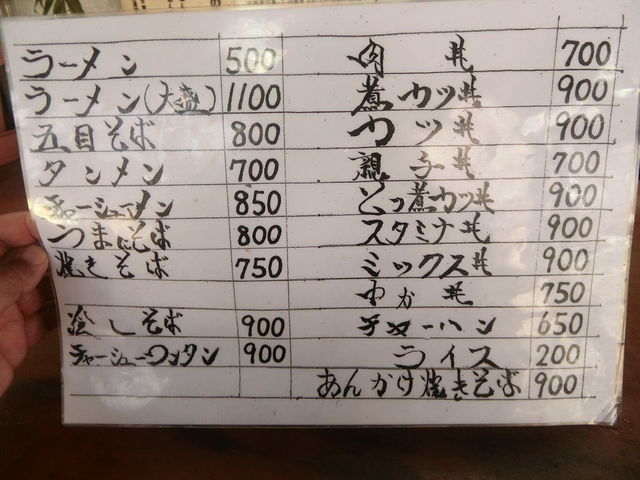 ラーメン 500
ラーメン(大盛) 1100
五目そば 800
タンメン 700
チャーシューメン 850
うまにそば 800
焼きそば 750
冷しそば 900
チャーシューワンタン 900
肉丼 700
煮カツ丼 900
カツ丼 900
親子丼 700
煮カツ丼 900
スタミナ丼 900
ミックス丼 900
中か丼 750
チャーハン 650
ライス 200
あんかけ焼きそば 900